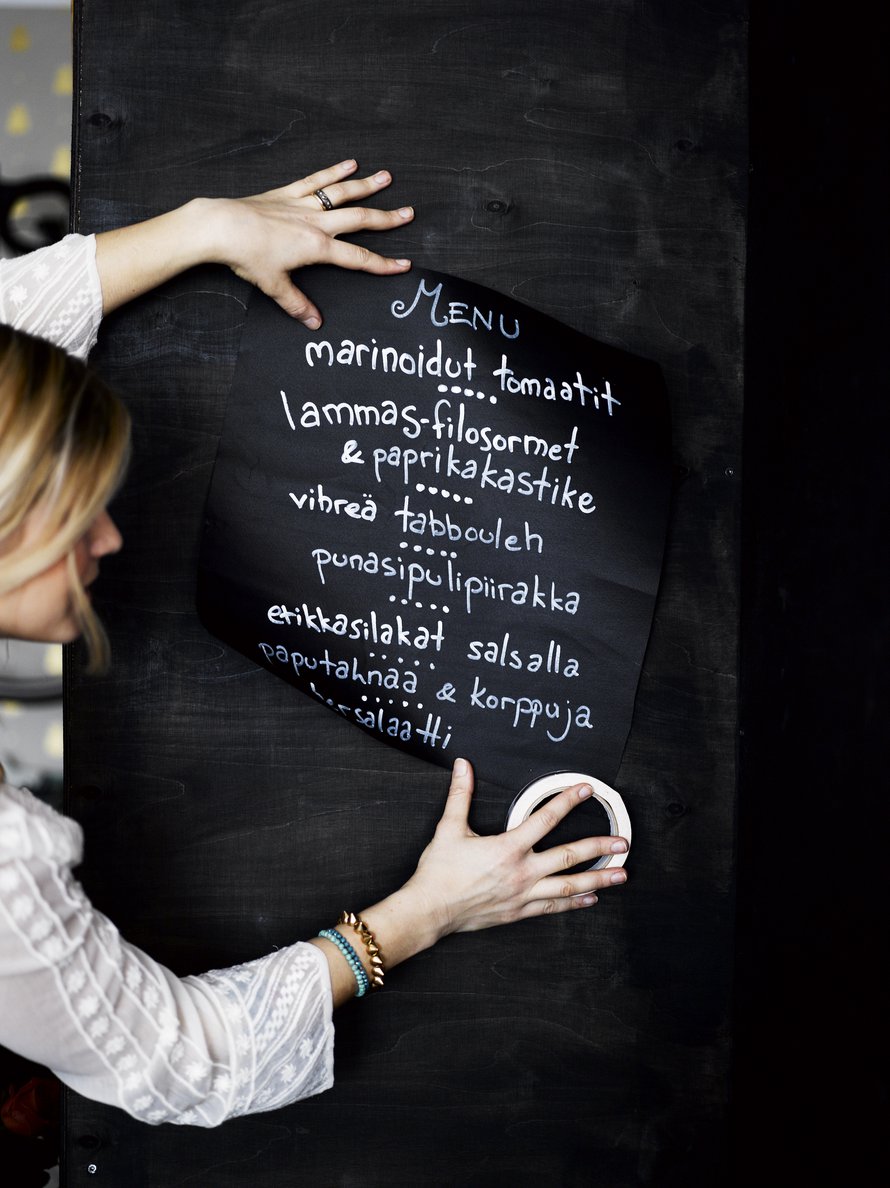 MENU
marinoidut tomaatit
lammas-filosormet
& paprikakastike
vihreä tabbouleh
punasipulipiirakka
etikkasilakat salsalla
paputahnaa & korppuja